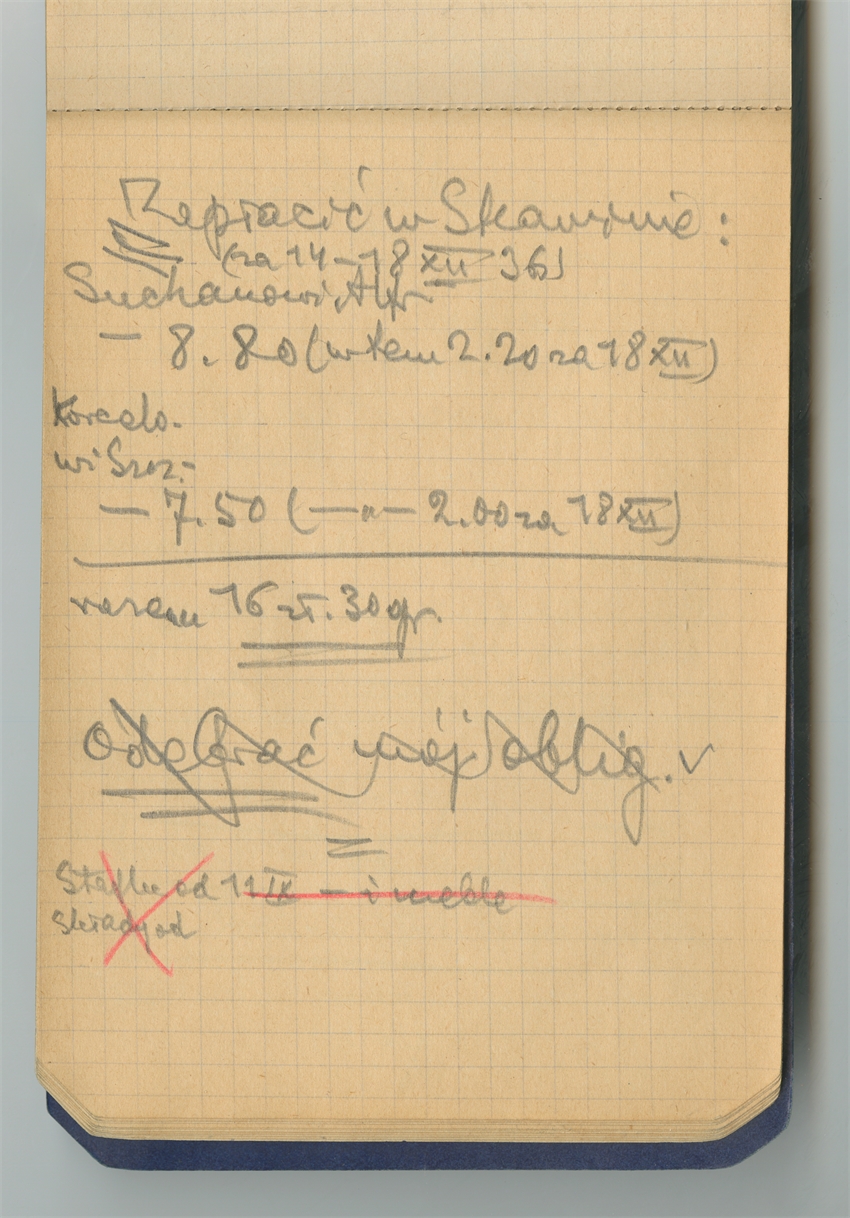 Zapłacić w Skawinie:
(za 14–18 XII 36)
Suchanowi, Alfr.
– 8.80 (w tem 2.20 za 18 XII)
wi Szcz.-
– 7.50 (—„— 2.00 za 18 XII)
razem 16 zł. 30 gr.
Odebrać mój oblig. ✓
od 11 IX – i meble
składy od